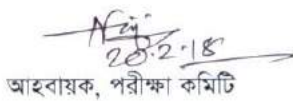 20.2.18
আহবায়ক, পরীক্ষা কমিটি